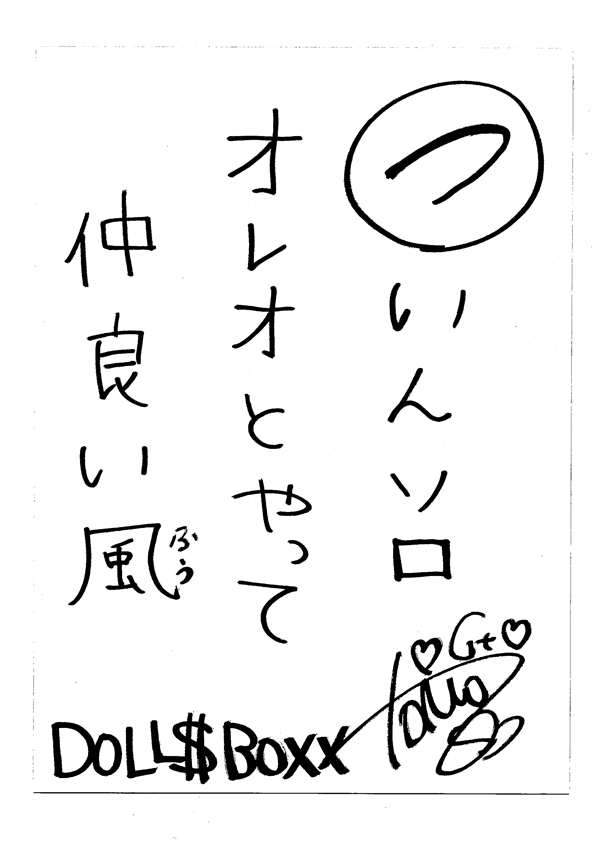 ついんソロ
オレオとやって
仲良い風
ぶう
♡Gt♡
DOLL$BOXX